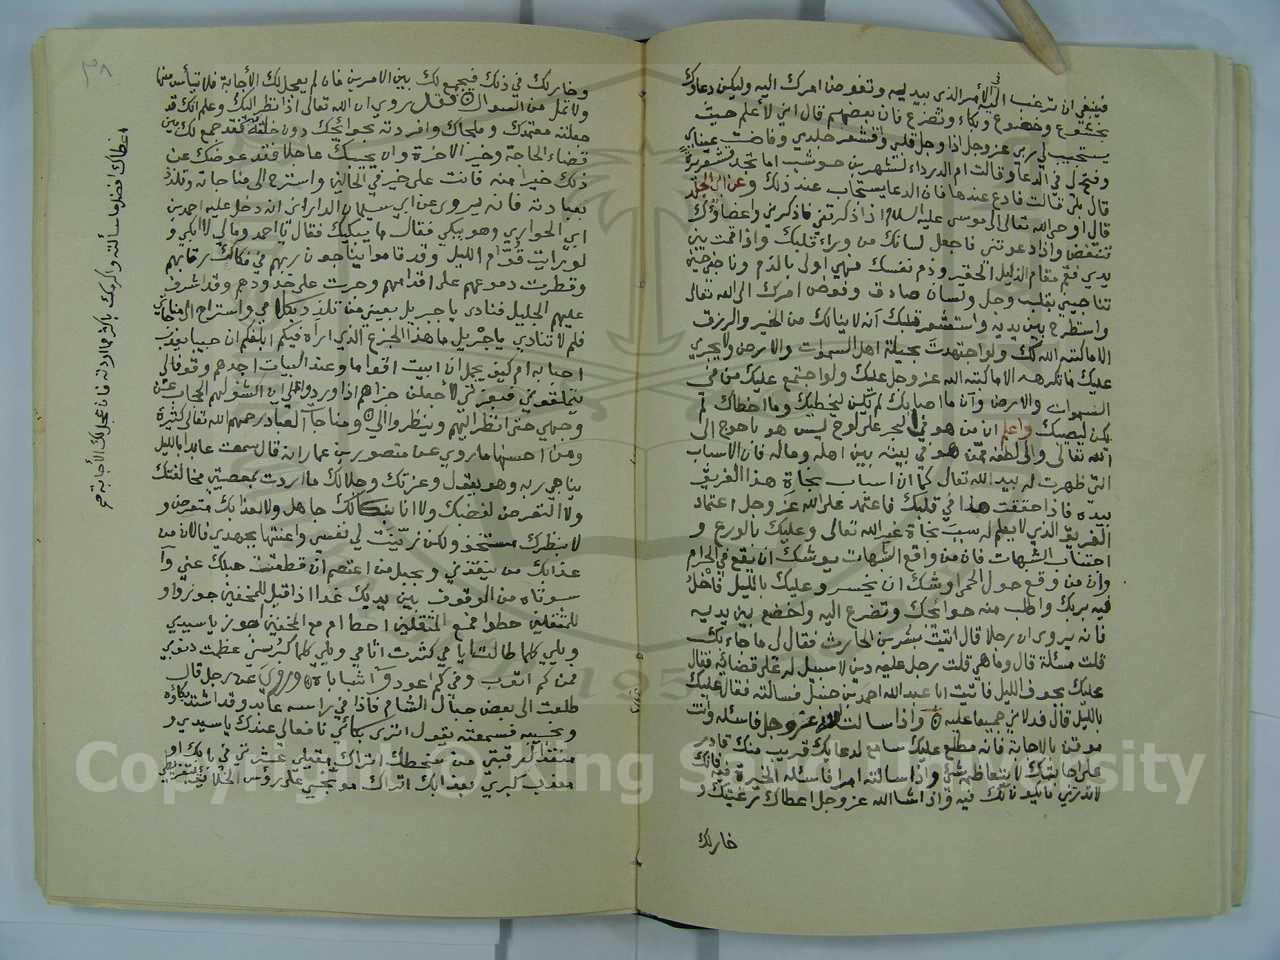 فينبغي ان ترغب اليه في الأمر الذي بيديه وتفوض امرك اليه وليكن دعاؤك
بخشوع وخضوع وبكاء وتضرع فان بعضهم قال اني لأعلم حيث
يستجيب لي ربي عز وجل اذا وجل قلبي واقشعر جلدي وفاضت عيناي
وفتح لي في الدعاء وقالت ام الدرداء لشهر بن حوشب اما تجد قشعريرة
قال بلى قالت فادع عندها فان الدعا يستجاب عند ذلك وعن ابي الجلد
قال اوحى الله تعالى الى موسى عليه السلام اذا ذكرتني فاذكرني واعضاؤك
تنتفض واذا دعوتني فاجعل لسانك من وراء قلبك واذا قمت بين
يدي فقم مقام الذليل الحقير وذم نفسك فهي اولى بالذم وناجني حين
تناجيني بقلب وجل ولسان صادق وفوض امرك الى الله تعالى
واستطرح بين يديه واستشعر قلبك أنه لا ينالك من الخير والرزق
الا ما كتبه الله لك ولو اجتهدت بحيلة اهل السموات والارض ولا يجري
عليك ما تكرهه الا ما كتبه الله عز وجل عليك ولو اجتمع عليك من في
السموات والارض وان ما اصابك لم يكن ليخطيك وما اخطاك لم
يكن ليصيبك واعلم ان من هو في البحر على لوح ليس هو باحوج الى
الله تعالى والى لطفه ممن هو في بيته بين اهله وماله فان الاسباب
التي ظهرت له بيد الله تعالى كما ان اسباب نجاة هذا الغريق
بيده فاذا حققت هذا في قلبك فاعتمد على الله عز وجل اعتماد
الغريق الذي لا يعلم له سبب نجاة غير الله تعالى وعليك بالورع و
اجتناب الشبهات فان من واقع الشبهات يوشك ان يقع في الحرام
وان من وقع حول الحمى اوشك ان يجسر وعليك بالليل فاخل
فيه بربك واطلب منه حوائجك وتضرع اليه واخضع بين يديه
فانه يروى ان رجلا قال اتيت بشر بن الحارث فقال لي ما جاء بك
قلت مسئلة قال وما هي قلت رجل عليه دين لا سبيل له على قضائه فقال
عليك بجوف الليل فاتيت ابا عبد الله احمد بن حنبل فسالته فقال عليك
بالليل قال قد لا من جميعا عليه واذا سالت الله عز وجل فاسئله وانت
موقن بالاجابة فانه مطلع عليك سامع لدعائك قريب منك قادر
على اجابتك لا يتعاظمه شئ واذا سالته امرا فاسئله الخيرة فيه فانك
لا تدري ما يكيد لك فيه واذا شا الله عز وجل اعطاك رغبتك و
خار لك
٣٨
وخار لك في ذلك فيجمع لك بين الامرين فان لم يعجل لك الأجابة فلا تيأس منها
ولا تمل من السوال فقد روي ان الله تعالى اذا نظر اليك وعلم انك قد
جعلته معتمدك وملجاك وافردته بحوائجك دون خلقه فقد جمع لك بين
قضاء الحاجة وخير الآخرة وان يجبك عاجلا فقد عوضك عن
ذلك خيرا منه فانت على خير في الحالين واسترح الى مناجاته وتلذذ
بعبادته فانه يروى عن ابي سليمان الداراني انه دخل عليه احمد بن
ابي الحواري وهو يبكي فقال ما يبكيك فقال يا احمد ومالي لا ابكي و
لو رايت قوام الليل وقد قاموا يناجون ربهم في فكاك رقابهم
وقطرت دموعهم على اقدامهم وجرت على خدودهم وقد اشرف
عليهم الجليل فنادى يا جبريل بعيني من تلذذ بكلامي واستراح الى مناجاتي
فلم لا تنادي يا جبريل ما هذا الجزع الذي اراه فيكم ابلغكم ان حبيبا يعذب
احبابه ام كيف يجمل ان ابيت اقواما وعند البيات اجدهم وقوفا لي
يتملقوني فبعزتي لأجعلن جزاهم اذا وردوا علي ان اكشف لهم الحجاب عن
وجهي حتى انظر اليهم وينظروا الي ومناجاة العباد رحمهم الله تعالى كثيرة
ومن احسنها ما روي عن منصور بن عمار انه قال سمعت عابدا بالليل
يناجي ربه وهو يقول وعزتك وجلالك ما اردت بمعصيتي مخالفتك
ولا التعرض لغضبك ولا انا بنكالك جاهل ولا لعذابك متعرض و
لا بنظرك مستخف ولكن زينت لي نفسي واعنتها بجهدي فالان من
عذابك من ينقذني وبحبل من اعتصم ان قطعت حبلك عني وآ
سوتاه من الوقوف بين يديك غدا اذا قيل للمخفين جوزوا و
للمثقلين حطوا فمع المثقلين احط ام مع المخفين اجوز يا سيدي
ويلي كلما طالت ايامي كثرت اثامي ويلي كلما كبر سني عظمت ذنوبي
فمن كم اتوب وفي كم اعود وا شباباه وروي عن رجل قال
طلعت الى بعض جبال الشام فاذا في راسه عابد وقد اشتد بكاؤه
ونحيبه فسمعته يقول اترى بكائي نافعا لي عندك يا سيدي و
منقذا لرقبتي من سخطك اتراك مقيلي عثرتي في بابك او
معذب كبري بعذابك اتراك موبخي على رؤس الخلائق
وعطاك افضل ما سألته واكرمك باكثر مما اردته فان عجل لك الاجابة صح